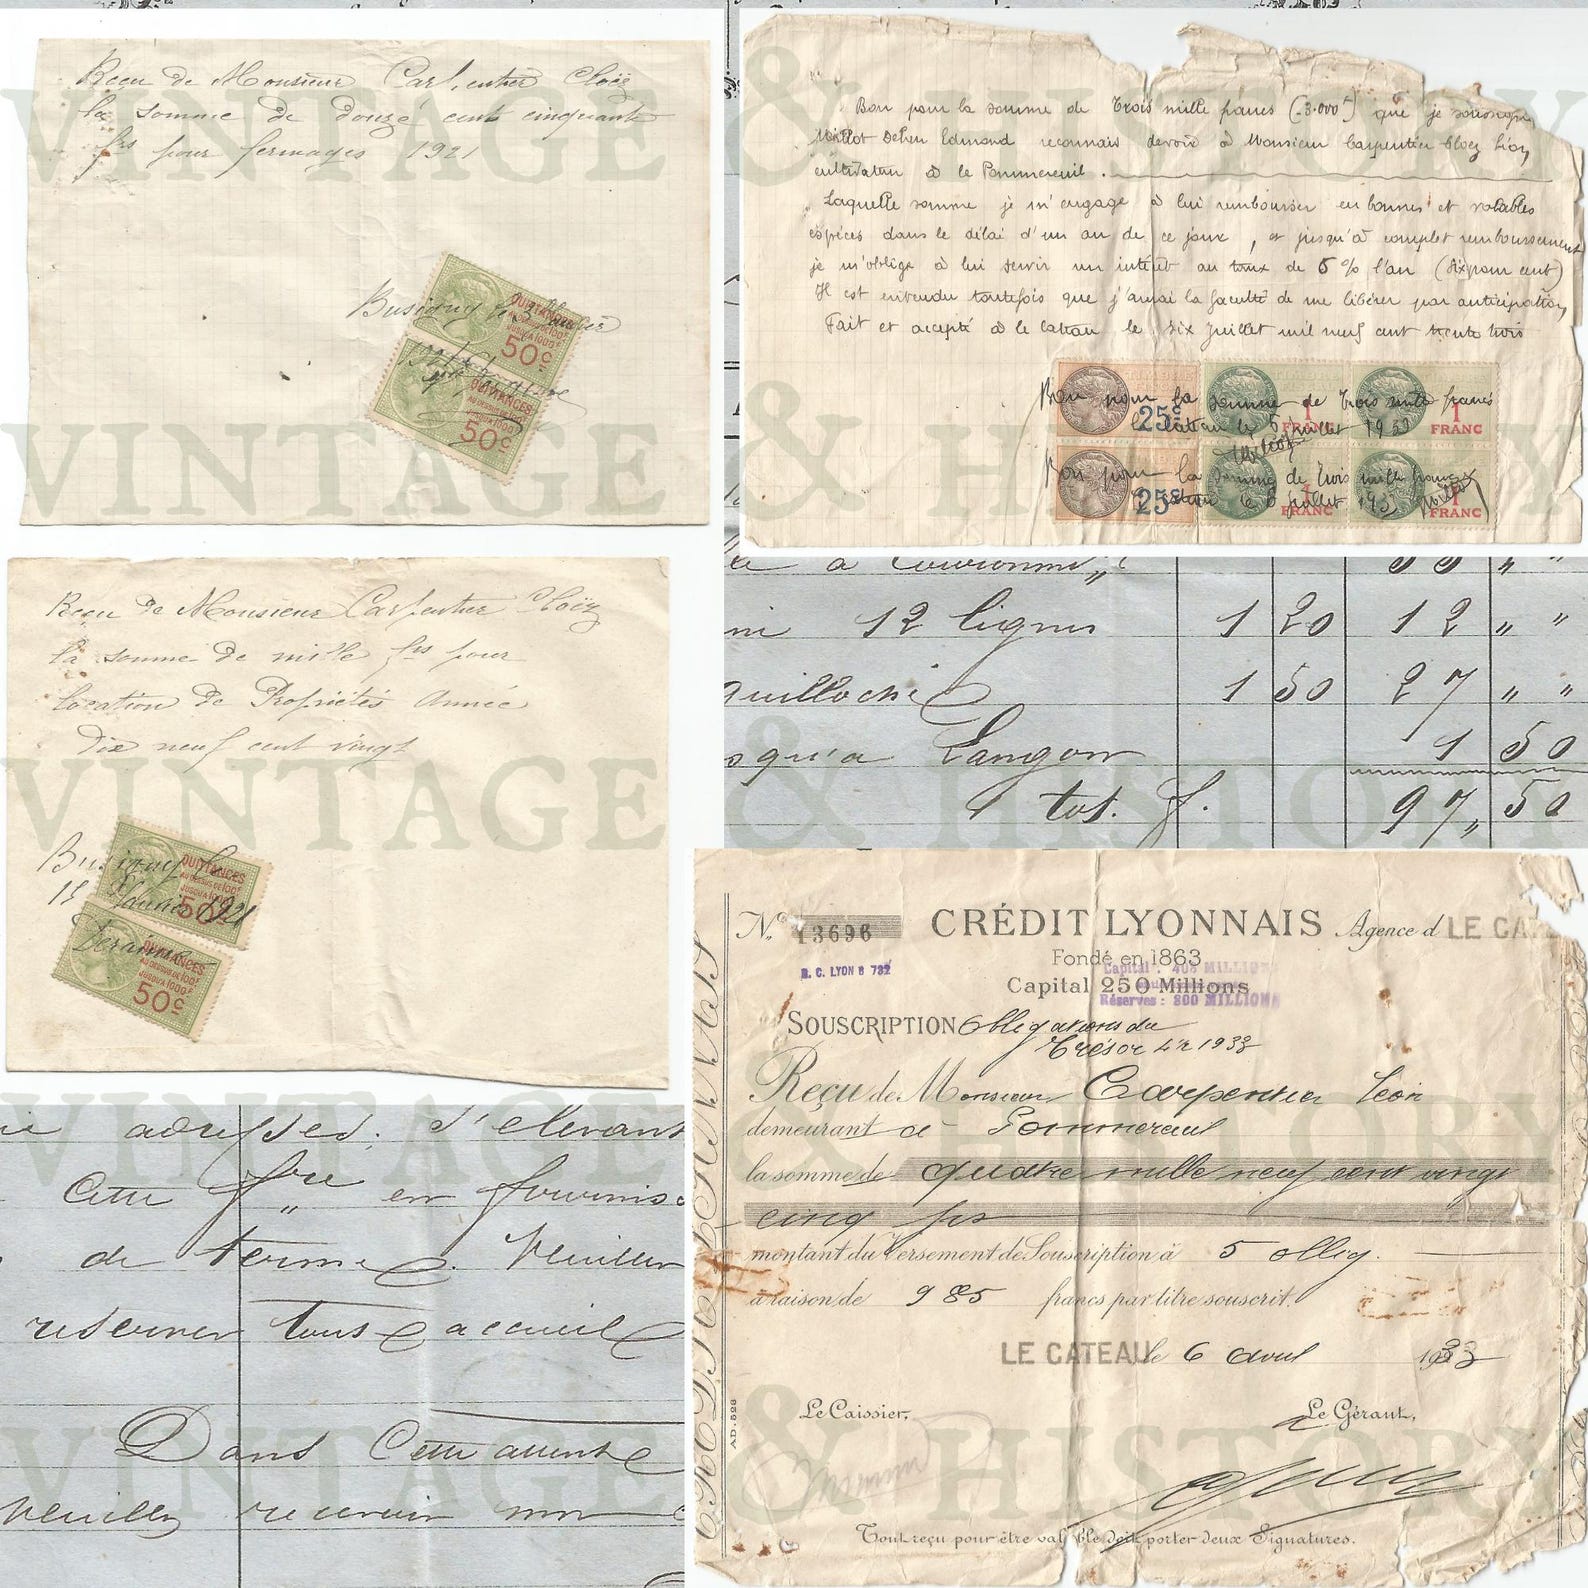 Reçu de Monsieur Carpentier Cloëz
la somme de douze cent cinquante
frs pour fermages 1921
Busigny le 3
QUITTANCES
AU DESSUS DE 100F
JUSQU'A 1000F
50c
QUITTANCES
50c
Bon pour la somme de Trois mille francs (3.000f) que je soussigné
Millot Dehen Edmond reconnais devoir à Monsieur Carpentier Cloez Léon
cultivateur à le Pommereuil.
Laquelle somme je m'engage à lui rembourser en bonnes et valables
espèces dans le délai d'un an de ce jour, et jusqu'à complet remboursement
je m'oblige à lui servir un intérêt au taux de 6% l'an (six pour cent)
Il est entendu toutefois que j'aurai la faculté de me libérer par anticipation,
Fait et accepté à le Cateau le six juillet mil neuf cent trente trois
Bon pour la somme de Trois mille francs
25c 1 FRANC 1 FRANC
le Cateau le 6 juillet 193
Bon pour la somme de Trois mille francs
25c 1 FRANC 1 FRANC
le 6 juillet 193
Reçu de Monsieur Carpentier Cloëz
la somme de mille frs pour
location de Propriétés Année
Dix neuf cent vingt
Busigny le
15 Janvier 1921
QUITTANCES
AU DESSUS DE 100F
JUSQU'A 1000F
50c
QUITTANCES
AU DESSUS DE 100F
JUSQU'A 1000F
50c
12 lignes 1 20 12 " "
guilloché 1 50 27 " "
squ'a Langon 1 50
tot. f. 97, 50
adresses. S'élevant
Cette fre en fournis
de terme. Veuillez
réserver tous accueil
Dans Cette attente
Veuillez recevoir mon
CRÉDIT LYONNAIS
No 13696 CRÉDIT LYONNAIS Agence d LE CA
Fondé en 1863
R. C. LYON B 732
Capital 250 Millions
Capital : 408 MILLIONS
Réserves : 800 MILLIONS
SOUSCRIPTION Obligations du
Trésor 4½ 1933
Reçu de Monsieur Carpentier Léon
demeurant à Pommereuil
la somme de quatre mille neuf cent vingt
cinq frs
montant du Versement de Souscription à 5 oblig.
à raison de 985 francs par titre souscrit.
LE CATEAU le 6 avril 1933
Le Caissier, Le Gérant,
AD. 528
Tout reçu pour être valable doit porter deux Signatures.
VINTAGE & HISTORY
VINTAGE & HISTORY
VINTAGE & HISTORY
VINTAGE & HISTORY
VINTAGE & HISTORY